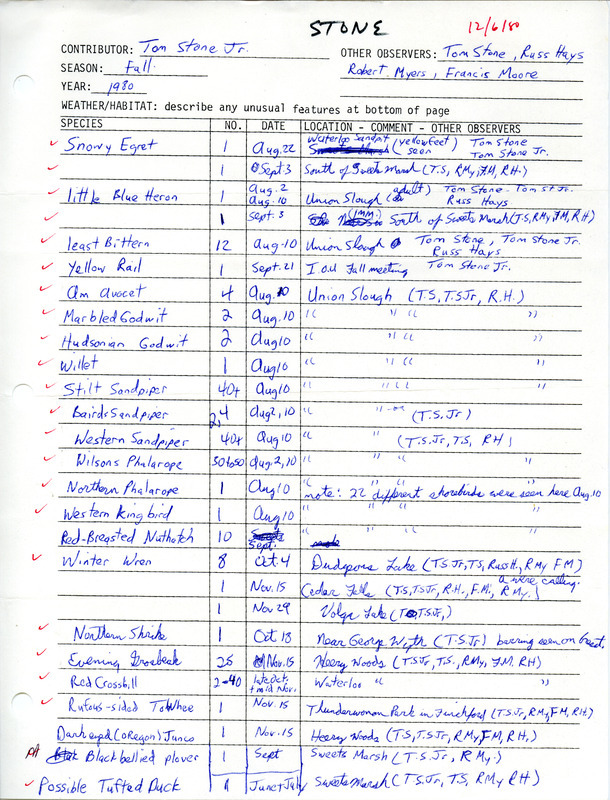 STONE 12/6/80
CONTRIBUTOR: Tom Stone Jr. OTHER OBSERVERS: Tom Stone, Russ Hays
SEASON: Fall Robert Myers, Francis Moore
YEAR: 1980
WEATHER/HABITAT: describe any unusual features at bottom of page
SPECIES NO. DATE LOCATION - COMMENT - OTHER OBSERVERS
Snowy Egret 1 Aug.22 Waterloo Sandpit (yellow feet) seen Tom Stone
Tom Stone Jr.
1 Sept 3 South of Sweets Marsh (T.S, RMy, F.M, R.H.)
little Blue Heron 1 Aug. 2
1 Aug. 10 Union Slough (adult) Tom Stone - Tom St. Jr.
Russ Hays
1 Sept. 3 (IMM.) South of Sweets Marsh (T.S, RMy, FM, RH)
least Bittern 12 Aug-10 Union Slough Tom Stone, Tom Stone Jr.
Russ Hays
Yellow Rail 1 Sept. 21 I.O.U Fall meeting Tom Stone Jr.
Am avocet 4 Aug. 10 Union Slough (T.S, T.S Jr, R.H.)
Marbled Godwit 2 Aug. 10 " " " "
Hudsonian Godwit 2 Aug 10 " " " "
Willet 1 Aug 10 " " " "
Stilt Sandpiper 40+ Aug 10 " " "
Bairds Sandpiper 2,4 Aug 2, 10 " " (T.S. Jr)
Western Sandpiper 40+ Aug 10 " " (T.S. Jr, T.S, RH)
Wilsons Phalarope 30 to 50 Aug. 2, 10 " " " "
Northern Phalarope 1 Aug 10 note: 22 different shorebirds were seen here Aug. 10
Western Kingbird 1 Aug 10 " " " "
Red-Breasted Nuthatch 10 Sept.
Winter Wren 8 Oct 4 Dudgeons Lake (T.S. Jr, T.S, Russ H., R My F M)
1 Nov. 15 Cedar Falls (T.S, T.S Jr, R.H., F.M., R My.) were calling.
1 Nov 29 Volga Lake (T.S. Jr,)
Northern Shrike 1 Oct 18 Near George Wyth (T.S. Jr) barring seen on breast.
Evening Grosbeak 25 Nov. 15 Heery Woods (T.S Jr, T.S., RMy, F.M. RH)
Red Crossbill 2-40 late Oct. + mid Nov. Waterloo " "
Rufous-sided Towhee 1 Nov. 15 Thunderwoman Park in Finchford (T.S. Jr, R My, F M, R H.)
Dark eyed (oregon) Junco 1 Nov. 15 Heery Woods (T.S, T.S Jr, RMy, F M, RH.)
Black bellied plover 1 Sept Sweets Marsh (T.S. Jr, R My.)
Possible Tufted Duck 1 June + July Sweets Marsh (T.S. Jr, T.S, RMy RH)